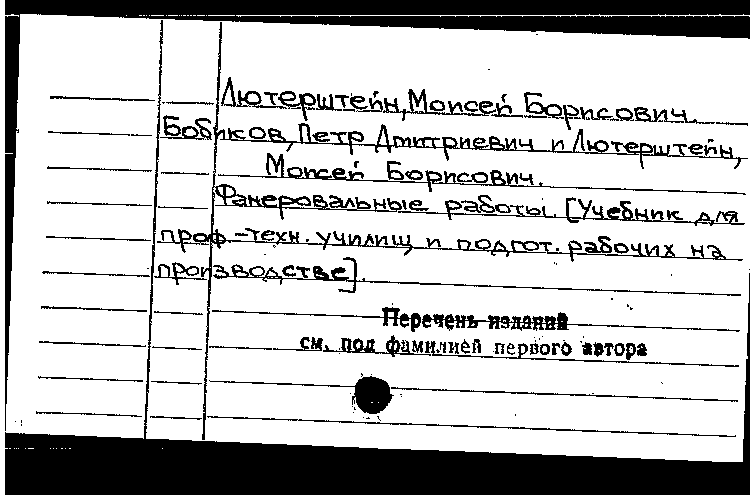 Лютерштейн, Моисей Борисович.
Бобиков, Петр Дмитриевич и Лютерштейн,
Моисей Борисович.
Фанеровальные работы. [Учебник для
проф.-техн. училищ и подгот. рабочих на
производстве].
Перечень изданий
см. под фамилией первого автора